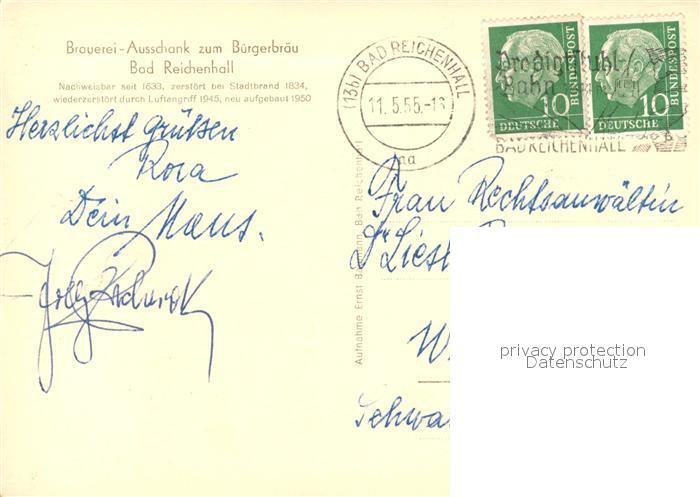 Brauerei-Ausschank zum Bürgerbräu
Bad Reichenhall
Nachweisbar seit 1633, zerstört bei Stadtbrand 1834,
wiederzerstört durch Luftangriff 1945, neu aufgebaut 1950
Herzlichst grüßen
Rosa
Dein Hans.
(13b) BAD REICHENHALL
11.5.55.-18
na
Predigtstuhl-
Bahn
BAD REICHENHALL
10
DEUTSCHE
BUNDESPOST
10
DEUTSCHE
BUNDESPOST
Aufnahme Ernst Baumann, Bad Reichenhall
Frau Rechtsanwältin
Dr Liesl
W
Schwa
privacy protection
Datenschutz